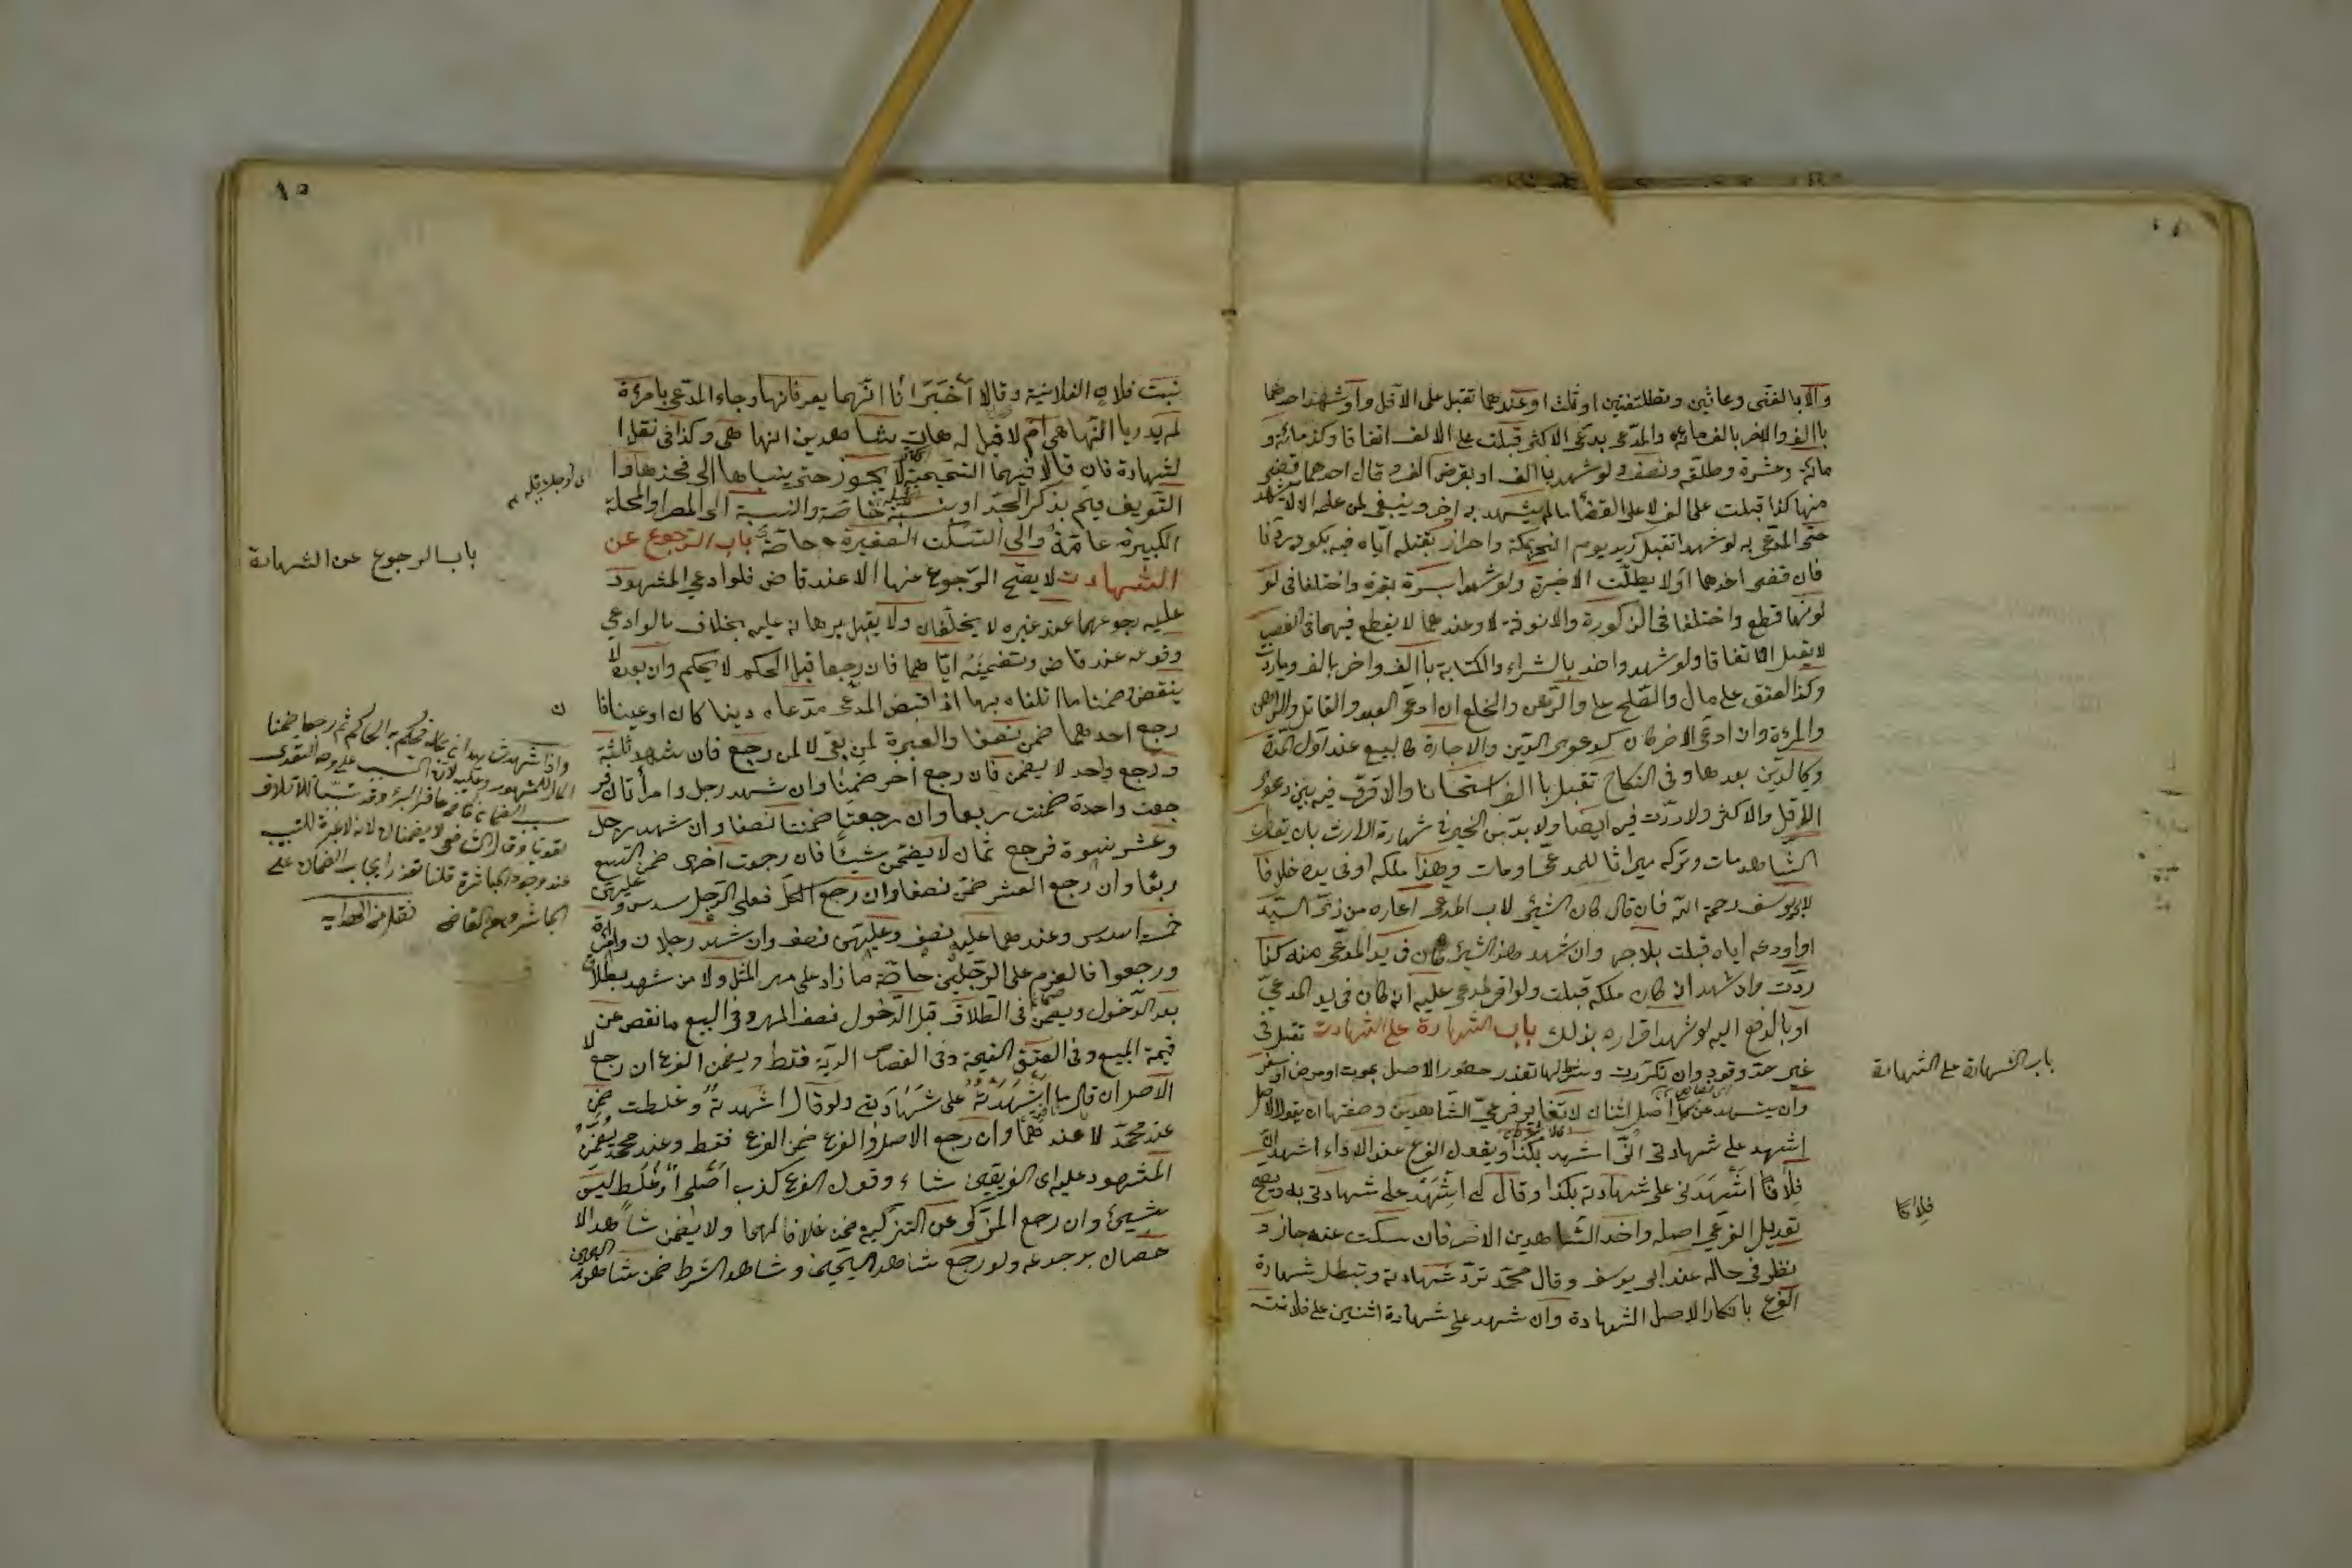 والا بالفتى وعاثين وبطلتفتين او ثلث وعندهما تقبل على الاقل ولو شهد احدهما
بالف والاخر بالف ومائة والمدعى يدعى الاكثر قبلت على الالف اتفاقا وكذا مائة و
مائة وعشرة وطلقة ونصف ولو شهد بالف او بقرض الف وقال احدهما قضى
منها كذا قبلت على الف لا على القضاء مالم يشهد به اخر وينبغى لمن علمه الا لا يشهد
حتى المدعى به لو شهدا تقبل زيد يوم النحر بمكة واخران بقتله اياه فيه بكوفة ردتا
فان قضى احدهما اولا بطلت الاخيرة ولو شهدا بسرقة بقرة واختلفا فى لو
لونها قطع واختلفا فى الذكورة والانوثة لا وعندهما لا يقطع فيهما فى الغصب
لا يقبل اتفاقا ولو شهد واحد بالشراء والكتابة بالف واخر بالف ومائة ردت
وكذا العتق على مال والصلح على والرهن والخلع ان ادعى العبد والقاتل والراهن
والمرءة وان ادعى الاخر كان كدعوى الدين والاجارة كالبيع عند اول المدة
وكالدين بعدها وفى النكاح تقبل بالف استحسانا ولا فرق فيه بين دعوى
الاقل والاكثر ولا ردت فيه ايضا ولا بد من الجر فى شهادة الارث بان يقول
الشاهد مات وتركه ميراثا للمدعى او مات وهذا ملكه او فى يده خلافا
لابى يوسف رحمه الله فان قال كان الشئ لاب المدعى اعاره من ذى السيد
او اودعه اياه قبلت بلا جر وان شهد هذا الشئ كان فى يد المدعى منذ كذا
ردت وان شهد انه كان ملكه قبلت ولو اقر المدعى عليه انه كان فى يد المدعى
او بالدفع اليه لو شهد اقراره بذلك باب الشهادة على الشهادت تقبل فى
غير حد وقود وان تكررت وشرط لها تعذر حضور الاصل بموت او مرض او سفر
وان يشهد عن كل اصل اثنان لا تغاير فرعى الشاهدين وصفتها ان يقول الاصل
اشهد على شهادتى انى اشهد بكذا ويقول الفرع عند الاداء اشهد ان
فلانا اشهدنى على شهادته بكذا وقال لى اشهد على شهادتى به ويصح
تعديل الفرعى اصله واحد الشاهدين الاخر فان سكت عنه جاز و
نظر فى حاله عند ابى يوسف وقال محمد ترد شهادته وتبطل شهادة
الفرع بانكار الاصل الشهادة وان شهد على شهادة اثنين على فلانة
باب الشهادة على الشهادة
فلانا
١٥
بنت فلان الفلانية وقالا اخبرانا انهما يعرفانها وجاء المدعى بامرءة
لم يدريا انها هى ام لا قيل له هات بشاهدين انها هى وكذا فى نقل ا
لشهادة فان قالا فيهما التميمية لا يجوز حتى ينسباها الى فخذها وا
التعريف يتم بذكر الجد او بنسبة خاصة والنسبة الى المصر والمحلة
الكبيرة عامة والى السكة الصغيرة خاصة باب الرجوع عن
الشهادت لا يصح الرجوع عنها الا عند قاض فلو ادعى المشهود
عليه رجوعهما عند غيره لا يحلفان ولا يقبل برهانه عليه بخلاف ما لو ادعى
وقوعه عند قاض وتضمينه اياهما فان رجعا قبل الحكم لا يحكم وان بعده لا
ينقض وضمنا ما اتلفاه بها اذا قبض المدعى مدعاه دينا كان او عينا فا
رجع احدهما ضمن نصفا والعبرة لمن بقى لا لمن رجع فان شهد ثلثة
ورجع واحد لا يضمن فان رجع اخر ضمنا وان شهد رجل وامرأتان فر
جعت واحدة ضمنت ربعا وان رجعتا ضمنتا نصفا وان شهد رجل
وعشر نسوة فرجع ثمان لا يضمن شيئا فان رجعت اخرى ضمن التسع
ربعا وان رجع العشر ضمن نصفا وان رجع الكل فعلى الرجل سدس وعليهن
خمسة اسدس وعندهما عليه نصف وعليهن نصف وان شهد رجلان وامرأة
ورجعوا فالغرم على الرجلين خاصة ما زاد على مهر المثل ولا من شهد بطلاق
بعد الدخول ويضمن فى الطلاق قبل الدخول نصف المهر وفى البيع ما نقص عن
قيمة المبيع وفى العتق القيمة وفى القصاص الدية فقط ويضمن الفرع ان رجع لا
الاصل ان قال ما اشهدته على شهادتى ولو قال اشهدته وغلطت ضمن
عند محمد لا عندهما وان رجع الاصل والفرع ضمن الفرع فقط وعند محمد يضمن
المشهود عليه اى الفريقين شاء وقول الفرع كذب اصلى او غلط ليس
بشيئ وان رجع المزكى عن التزكية ضمن خلافا لهما ولا يضمن شاهد الا
حصان برجوعه ولو رجع شاهد اليمين وشاهد الشرط ضمن شاهد اليمين
باب الرجوع عن الشهادة
واذا شهد شاهدان بمال فحكم به الحاكم ثم رجعا ضمنا
المال للمشهود عليه لان التسبيب على وجه التعدى
سبب الضمان كحافر البئر وقد تسببا للاتلاف
تعديا وقال الشافعى لا يضمنان لانه لا عبرة للتسبيب
عند وجود المباشرة قلنا تعذر ايجاب الضمان على
المباشر وهو القاضى نقل من الهداية